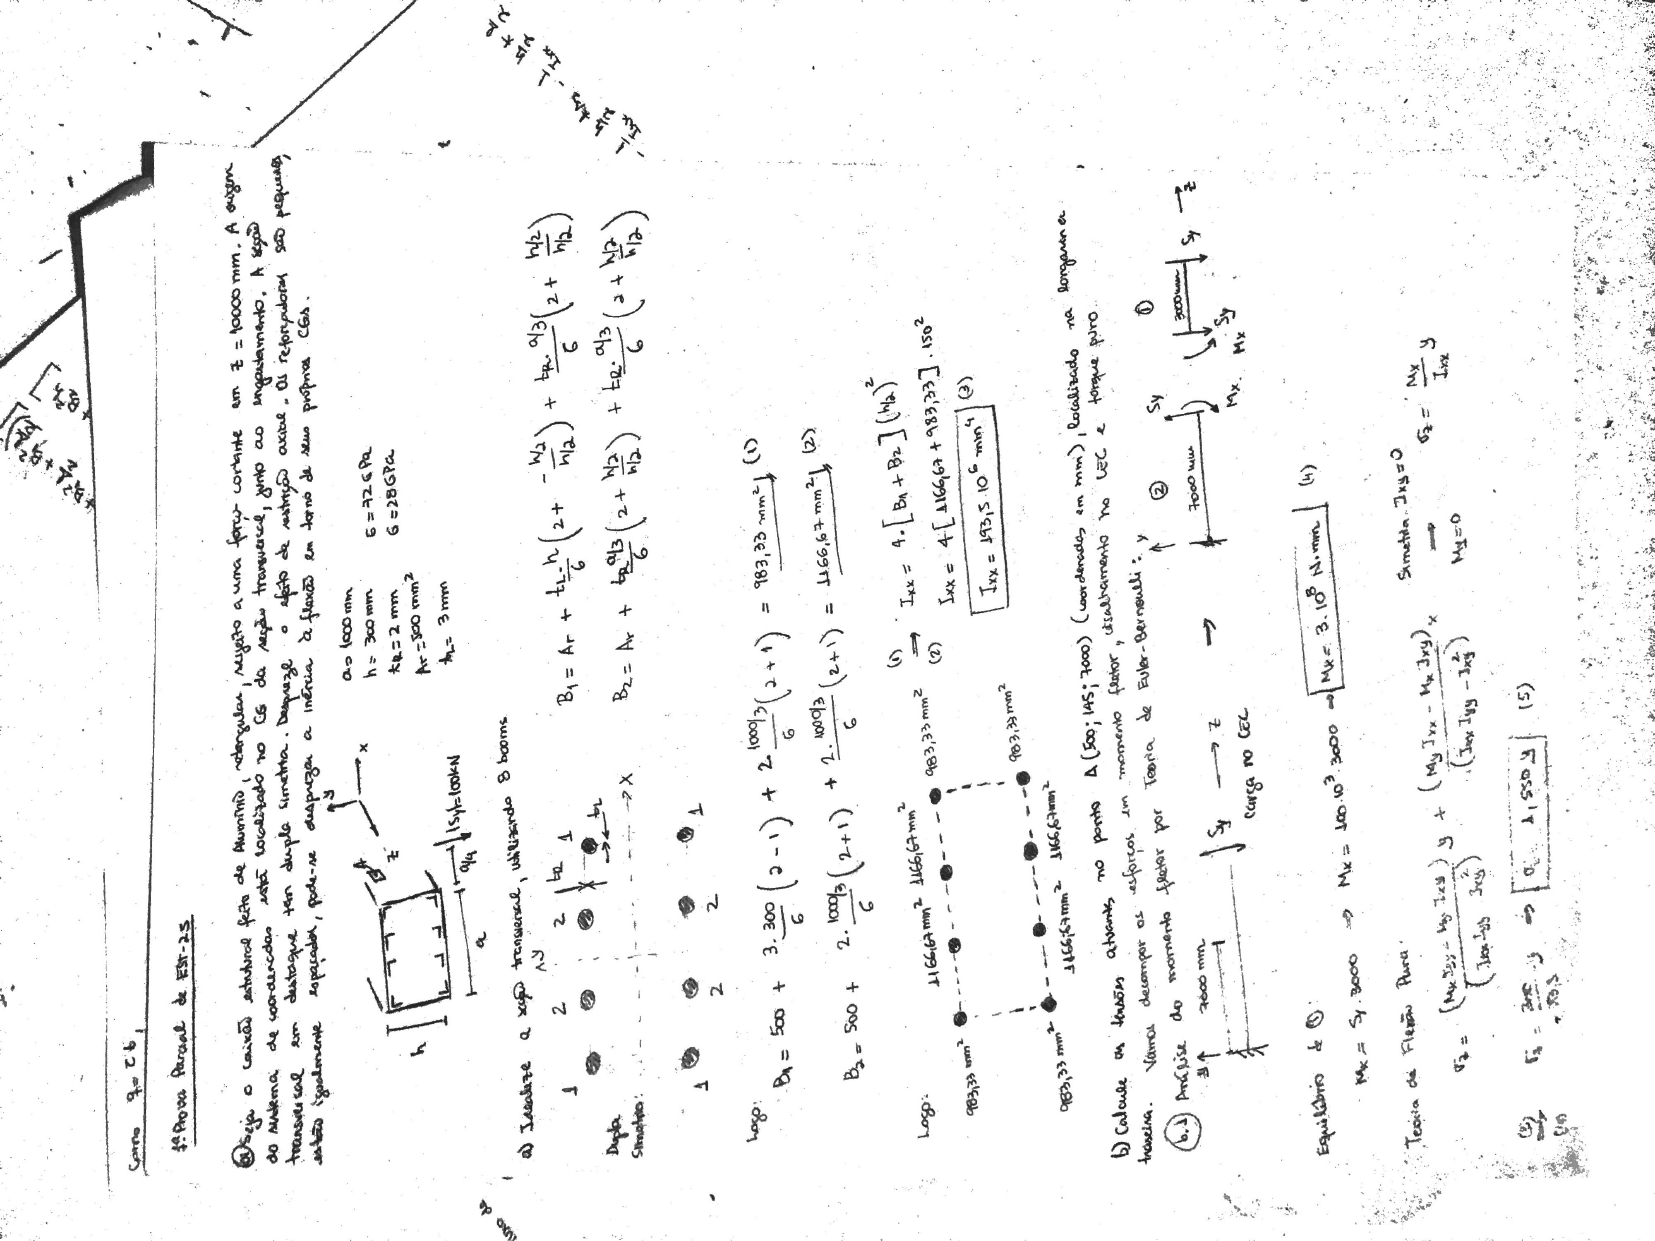 Como q = τb,
1ª Prova Parcial de EST-25
a) Seja o caixão estrutural feito de Alumínio, retangular, sujeito a uma força cortante em z = 10000 mm. A origem
do sistema de coordenadas está localizado no CG da seção transversal, junto ao engastamento. A seção
transversal em destaque tem dupla simetria. Despreze o efeito de restrição axial. Os reforçadores são pequenos,
estão igualmente espaçados, pode-se desprezar a inércia à flexão em torno de seus próprios CGs.
y
x
z
A
h
a
a/4
|Sy|=100KN
a = 1000 mm
h = 300 mm E = 72 GPa
tR = 2 mm G = 28 GPa
Ar = 500 mm²
tL = 3 mm
a) Idealize a seção transversal, utilizando 8 booms
1 2 y 2 tR 1
tL
Dupla
Simetria: x
1 2 2 1
B1 = Ar + tL.h/6 (2 + -h/2 / h/2) + tR.a/3 / 6 (2 + h/2 / h/2)
B2 = Ar + tR a/3 / 6 (2 + h/2 / h/2) + tR.a/3 / 6 (2 + h/2 / h/2)
Logo:
B1 = 500 + 3.300/6 (2 - 1) + 2.1000/3 / 6 (2 + 1) = 983,33 mm² (1)
B2 = 500 + 2.1000/3 / 6 (2+1) + 2.1000/3 / 6 (2+1) = 1166,67 mm² (2)
Logo:
1166,67 mm² 1166,67 mm²
983,33 mm² 983,33 mm²
983,33 mm² 983,33 mm²
1166,67 mm² 1166,67 mm²
(1) ⇒ (2) Ixx = 4.[B1 + B2](h/2)²
Ixx = 4[1166,67 + 983,33].150²
Ixx = 193,5.10⁶ mm⁴ (3)
b) Calcule as tensões atuantes no ponto A (500; 145; 7000) (coordenadas em mm), localizado na longarina
traseira. Vamos decompor os esforços em momento fletor, cisalhamento no CEC e torque puro.
b.1) Análise do momento fletor por Teoria de Euler-Bernoulli:
y 7000 mm Sy → z
carga no CEC
→ y ② 7000 mm Sy Mx
① 3000 mm Mx Sy Sy → z
Equilíbrio de ①:
Mx = Sy.3000 ⇒ Mx = 100.10³.3000 ⇒ Mx = 3.10⁸ N.mm (4)
Teoria de Flexão Pura:
σz = (Mx Iyy - My Ixy) / (Ixx Iyy - Ixy²) y + (My Ixx - Mx Ixy) / (Ixx Iyy - Ixy²) x
Simetria Ixy=0 → My=0 σz = Mx/Ixx y
σz = y ⇒ 1,550 y (5)